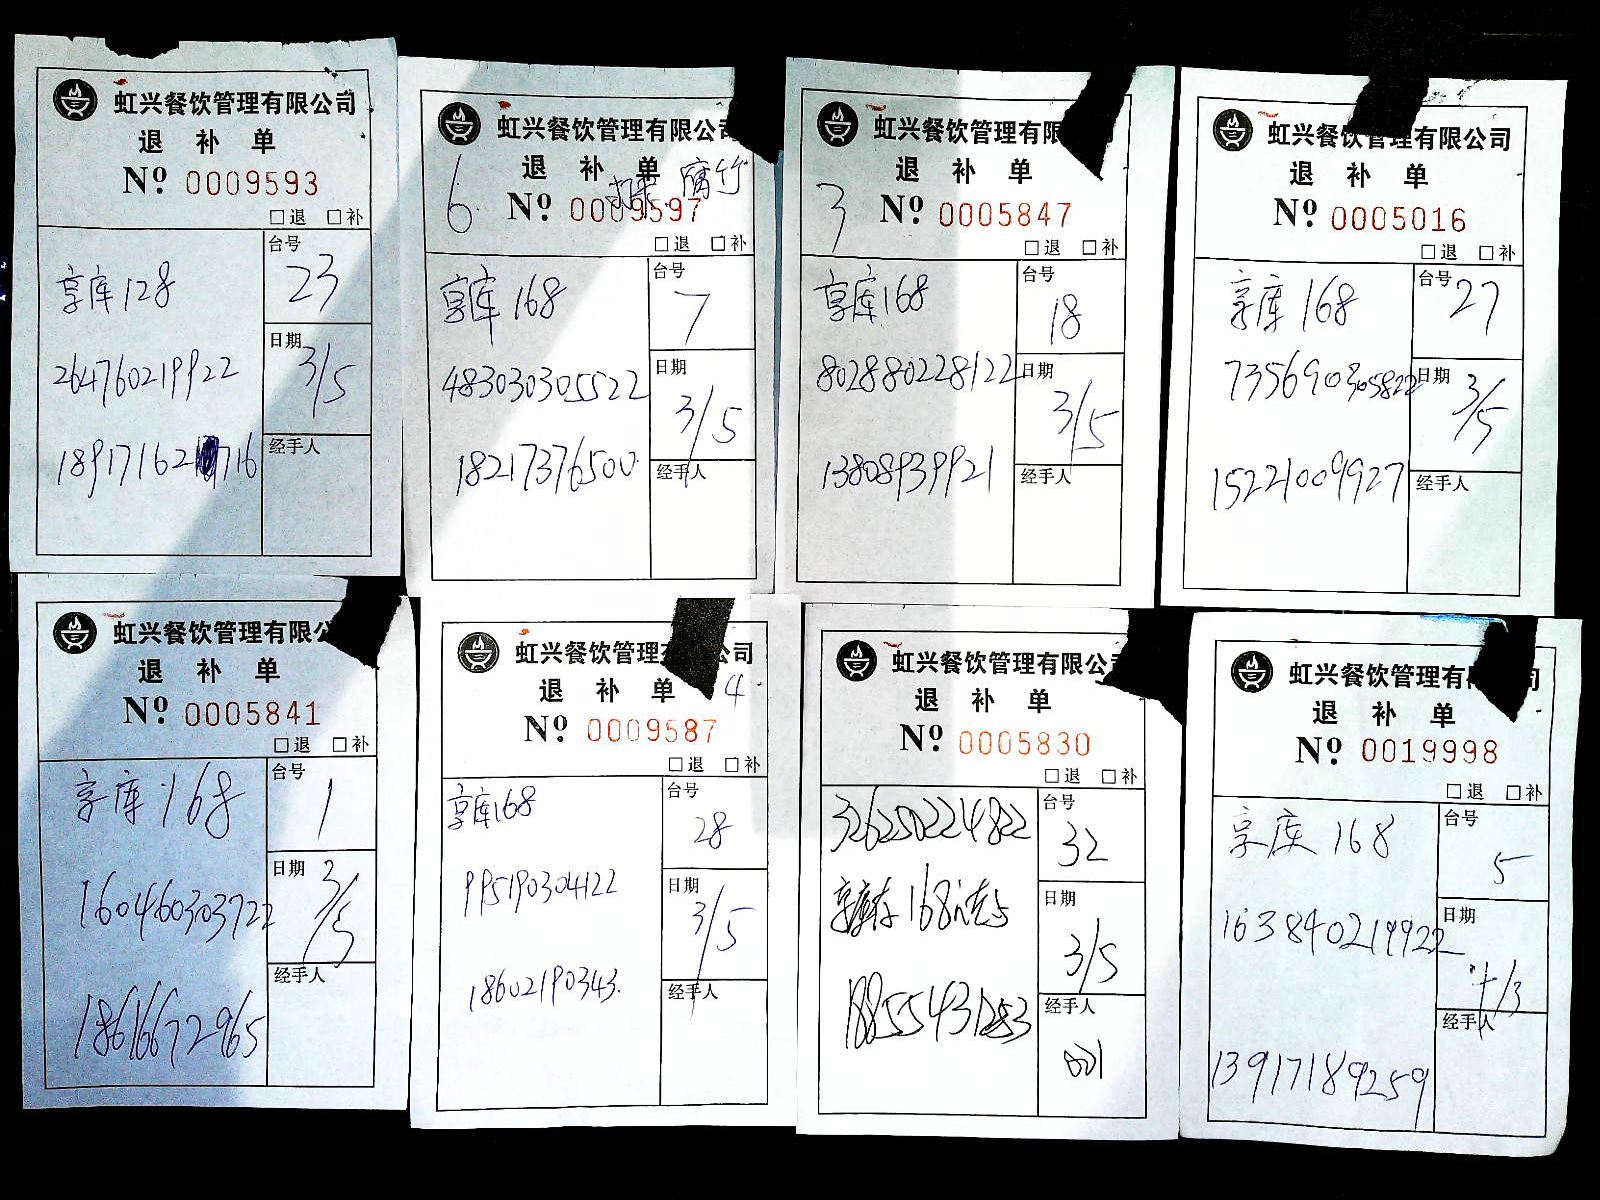 虹兴餐饮管理有限公司
退 补 单
Nº 0009593
□退 □补
台号
23
享库128
日期
3/5
264760219922
经手人
18917162716
虹兴餐饮管理有限公司
退 补 单
腐竹
6.
Nº 0009597
□退 □补
台号
7
享库 168
日期
3/5
483030305522
经手人
18217376500
虹兴餐饮管理有限
退 补 单
3
Nº 0005847
□退 □补
台号
18
享库168
日期
3/5
802880228122
经手人
13808939921
虹兴餐饮管理有限公司
退 补 单
Nº 0005016
□退 □补
台号
27
享库 168
日期
3/5
735690305822
经手人
15221009927
虹兴餐饮管理有限公
退 补 单
Nº 0005841
□退 □补
台号
1
享库 168
日期
3/5
160460303722
经手人
18616672965
虹兴餐饮管理 公司
退 补 单
4
Nº 0009587
□退 □补
台号
28
享库168
日期
3/5
995190304122
经手人
18602190343.
虹兴餐饮管理有限公司
退 补 单
Nº 0005830
□退 □补
台号
32
326250224822
日期
3/5
168
经手人
001
18855431253
虹兴餐饮管理有 司
退 补 单
Nº 0019998
□退 □补
台号
5
享库 168
日期
163840219922
经手人
13917189259